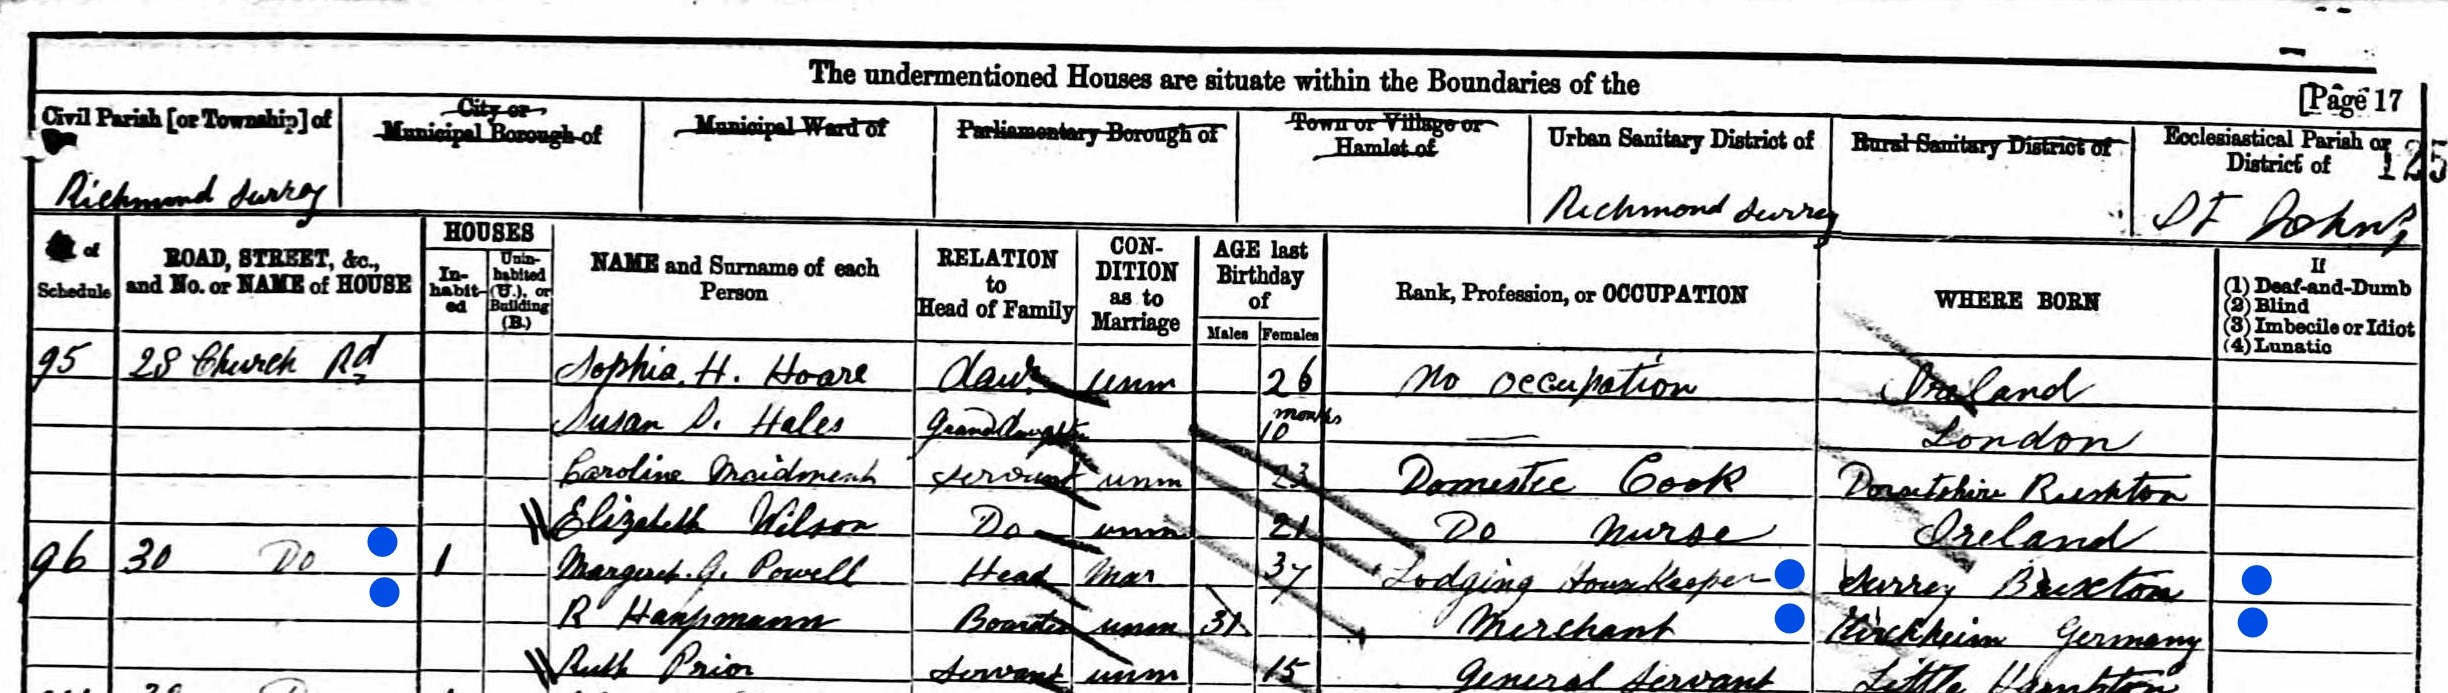 The undermentioned Houses are situate within the Boundaries of the
[Page 17
Civil Parish [or Township] of
City or Municipal Borough of
Municipal Ward of
Parliamentary Borough of
Town or Village or Hamlet of
Urban Sanitary District of
Rural Sanitary District of
Ecclesiastical Parish or District of
125
Richmond Surrey
Richmond Surrey
St Johns
of Schedule
ROAD, STREET, &c., and No. or NAME of HOUSE
HOUSES
In-habit-ed
Unin-habited (U.), or Building (B.)
NAME and Surname of each Person
RELATION to Head of Family
CON-DITION as to Marriage
AGE last Birthday of
Males
Females
Rank, Profession, or OCCUPATION
WHERE BORN
If
(1) Deaf-and-Dumb
(2) Blind
(3) Imbecile or Idiot
(4) Lunatic
95 28 Church Rd Sophia H. Hoare daur unm 26 No occupation Ireland
Susan D. Hales Granddaughter 10 months — London
Caroline Maidment servant unm 23 Domestic Cook Dorsetshire
Elizabeth Wilson Do unm 21 Do Nurse Ireland
96 30 Do 1 Margaret G. Powell Head Mar 37 Lodging House Keeper Surrey Brixton
R Boarder unm 31 Merchant Kirchheim Germany
Ruth Prior servant unm 15 General Servant Little Hampton